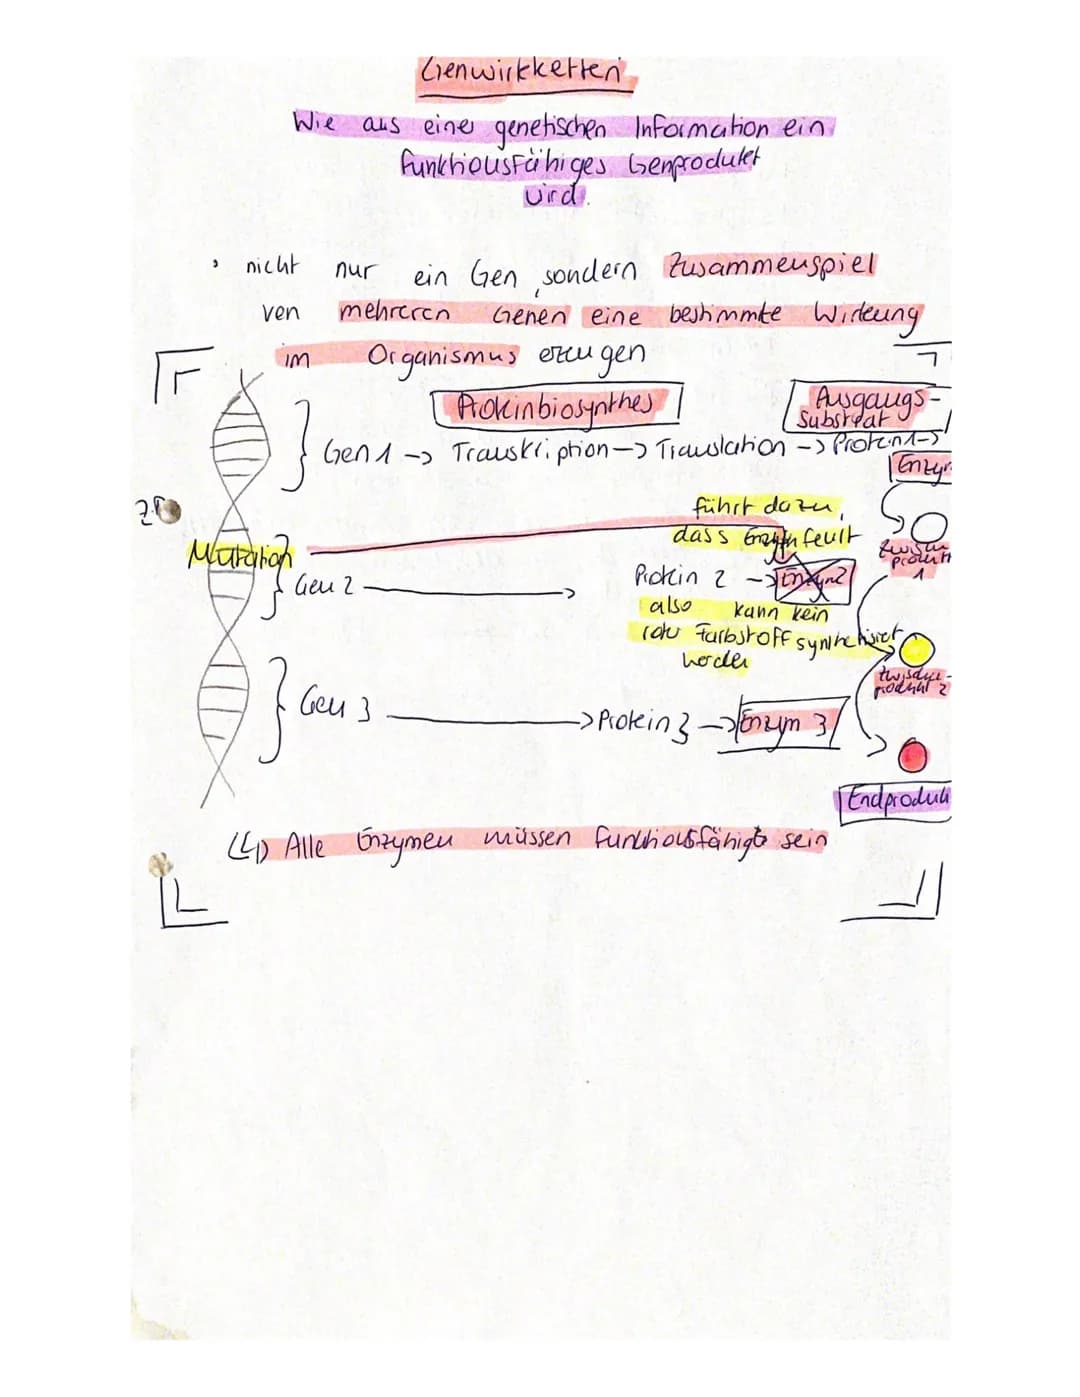 Genwirkketten
Wie aus einer genetischen Information ein
funktionsfähiges Genprodukt
wird.
nicht nur ein Gen, sondern Zusammenspiel
von mehreren Genen eine bestimmte Wirkung
im Organismus erzeugen
Proteinbiosynthes
Ausgangs-
Substrat
Gen 1 -> Transkription -> Translation -> Protein 1 ->
Enzym
führt dazu,
dass Enzym feult
Zwischen
produkt
1
Mutation
Gen 2
Protein 2 -> Enzym 2
also kann kein
roter Farbstoff synthetisiert
werden
Zwischen-
produkt 2
Gen 3 -> Protein 3 -> Enzym 3
Endproduk
Alle Enzymen müssen funktionsfähig sein